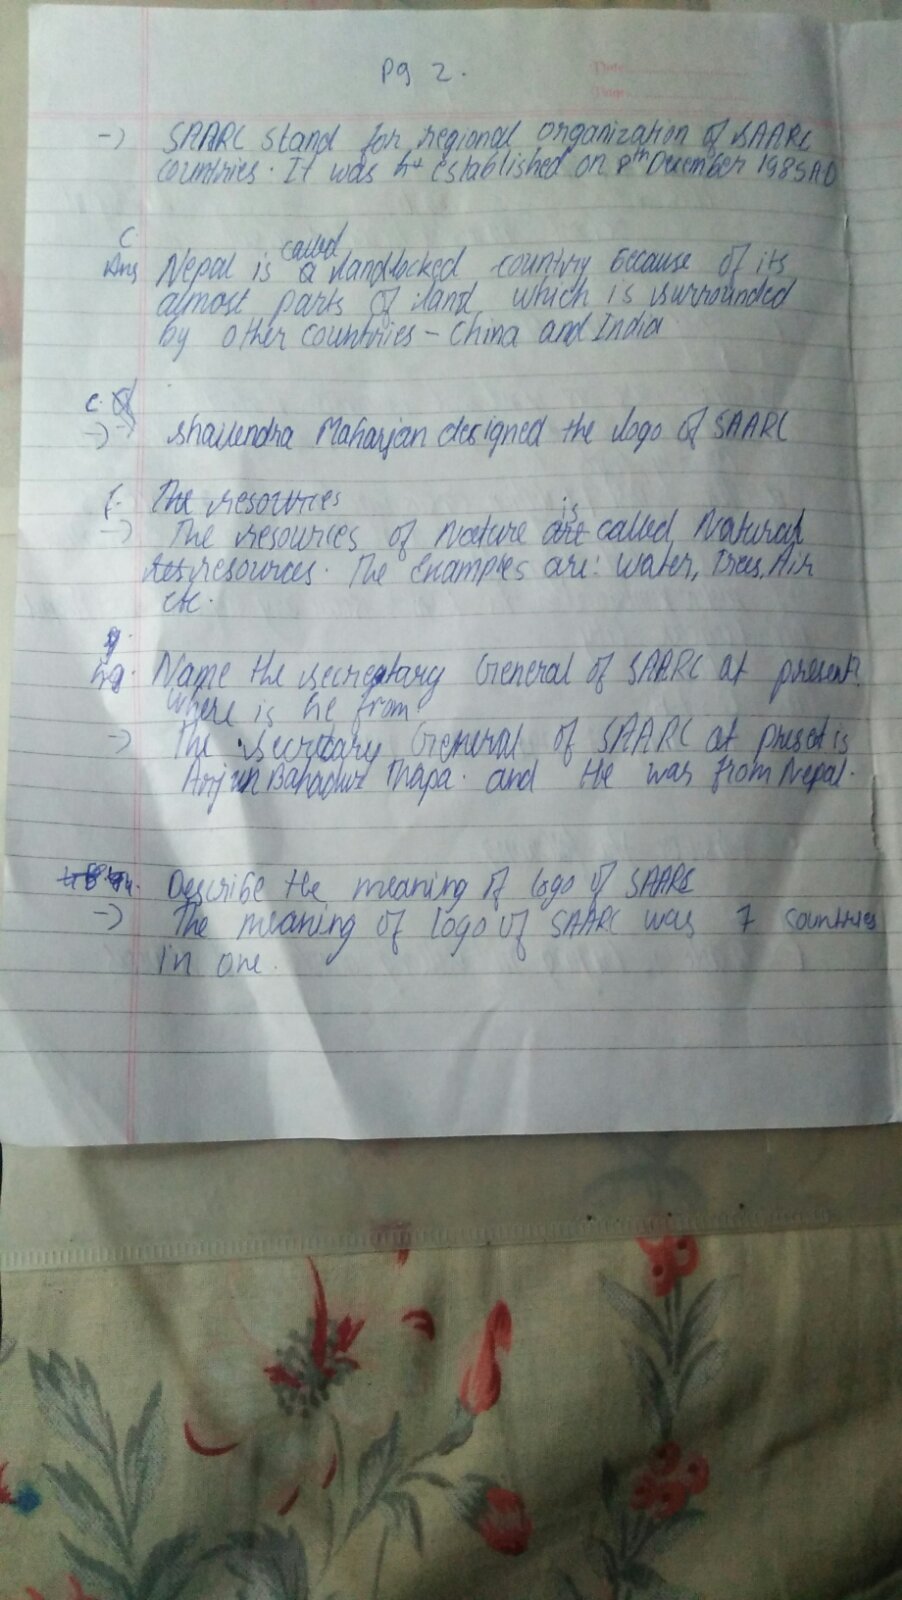 Pg 2.
Date
Page
-> SAARC stand for regional organization of SAARC
countries. It was established on 8th December 1985 AD
C
Ans Nepal is called a landlocked country because of its
almost parts of land which is surrounded
by other countries - China and India
e.
-> Shailendra Maharjan designed the logo of SAARC
f. The resources
-> The resources of Nature is called Natural
resources. The Examples are: Water, Trees, Air
etc.
g. Name the secretary General of SAARC at present?
Where is he from
-> The Secretary General of SAARC at preset is
Arjun Bahadur Thapa. and He was from Nepal.
h. Describe the meaning of logo of SAARC
-> The meaning of logo of SAARC was 7 countries
in one.